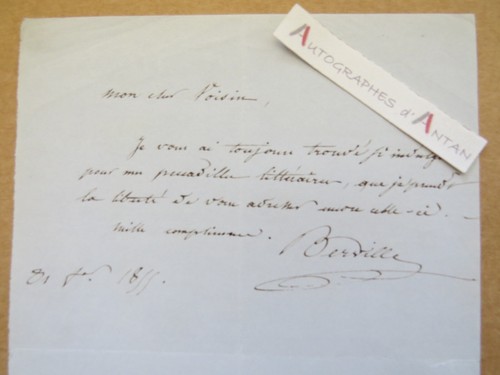 AUTOGRAPHES d'ANTAN
mon cher Voisin,
Je vous ai toujours trouvé si indulgent
pour mes peccadilles littéraires, que je prends
la liberté de vous adresser encore celle-ci.
mille complimens.
Berville
1855.